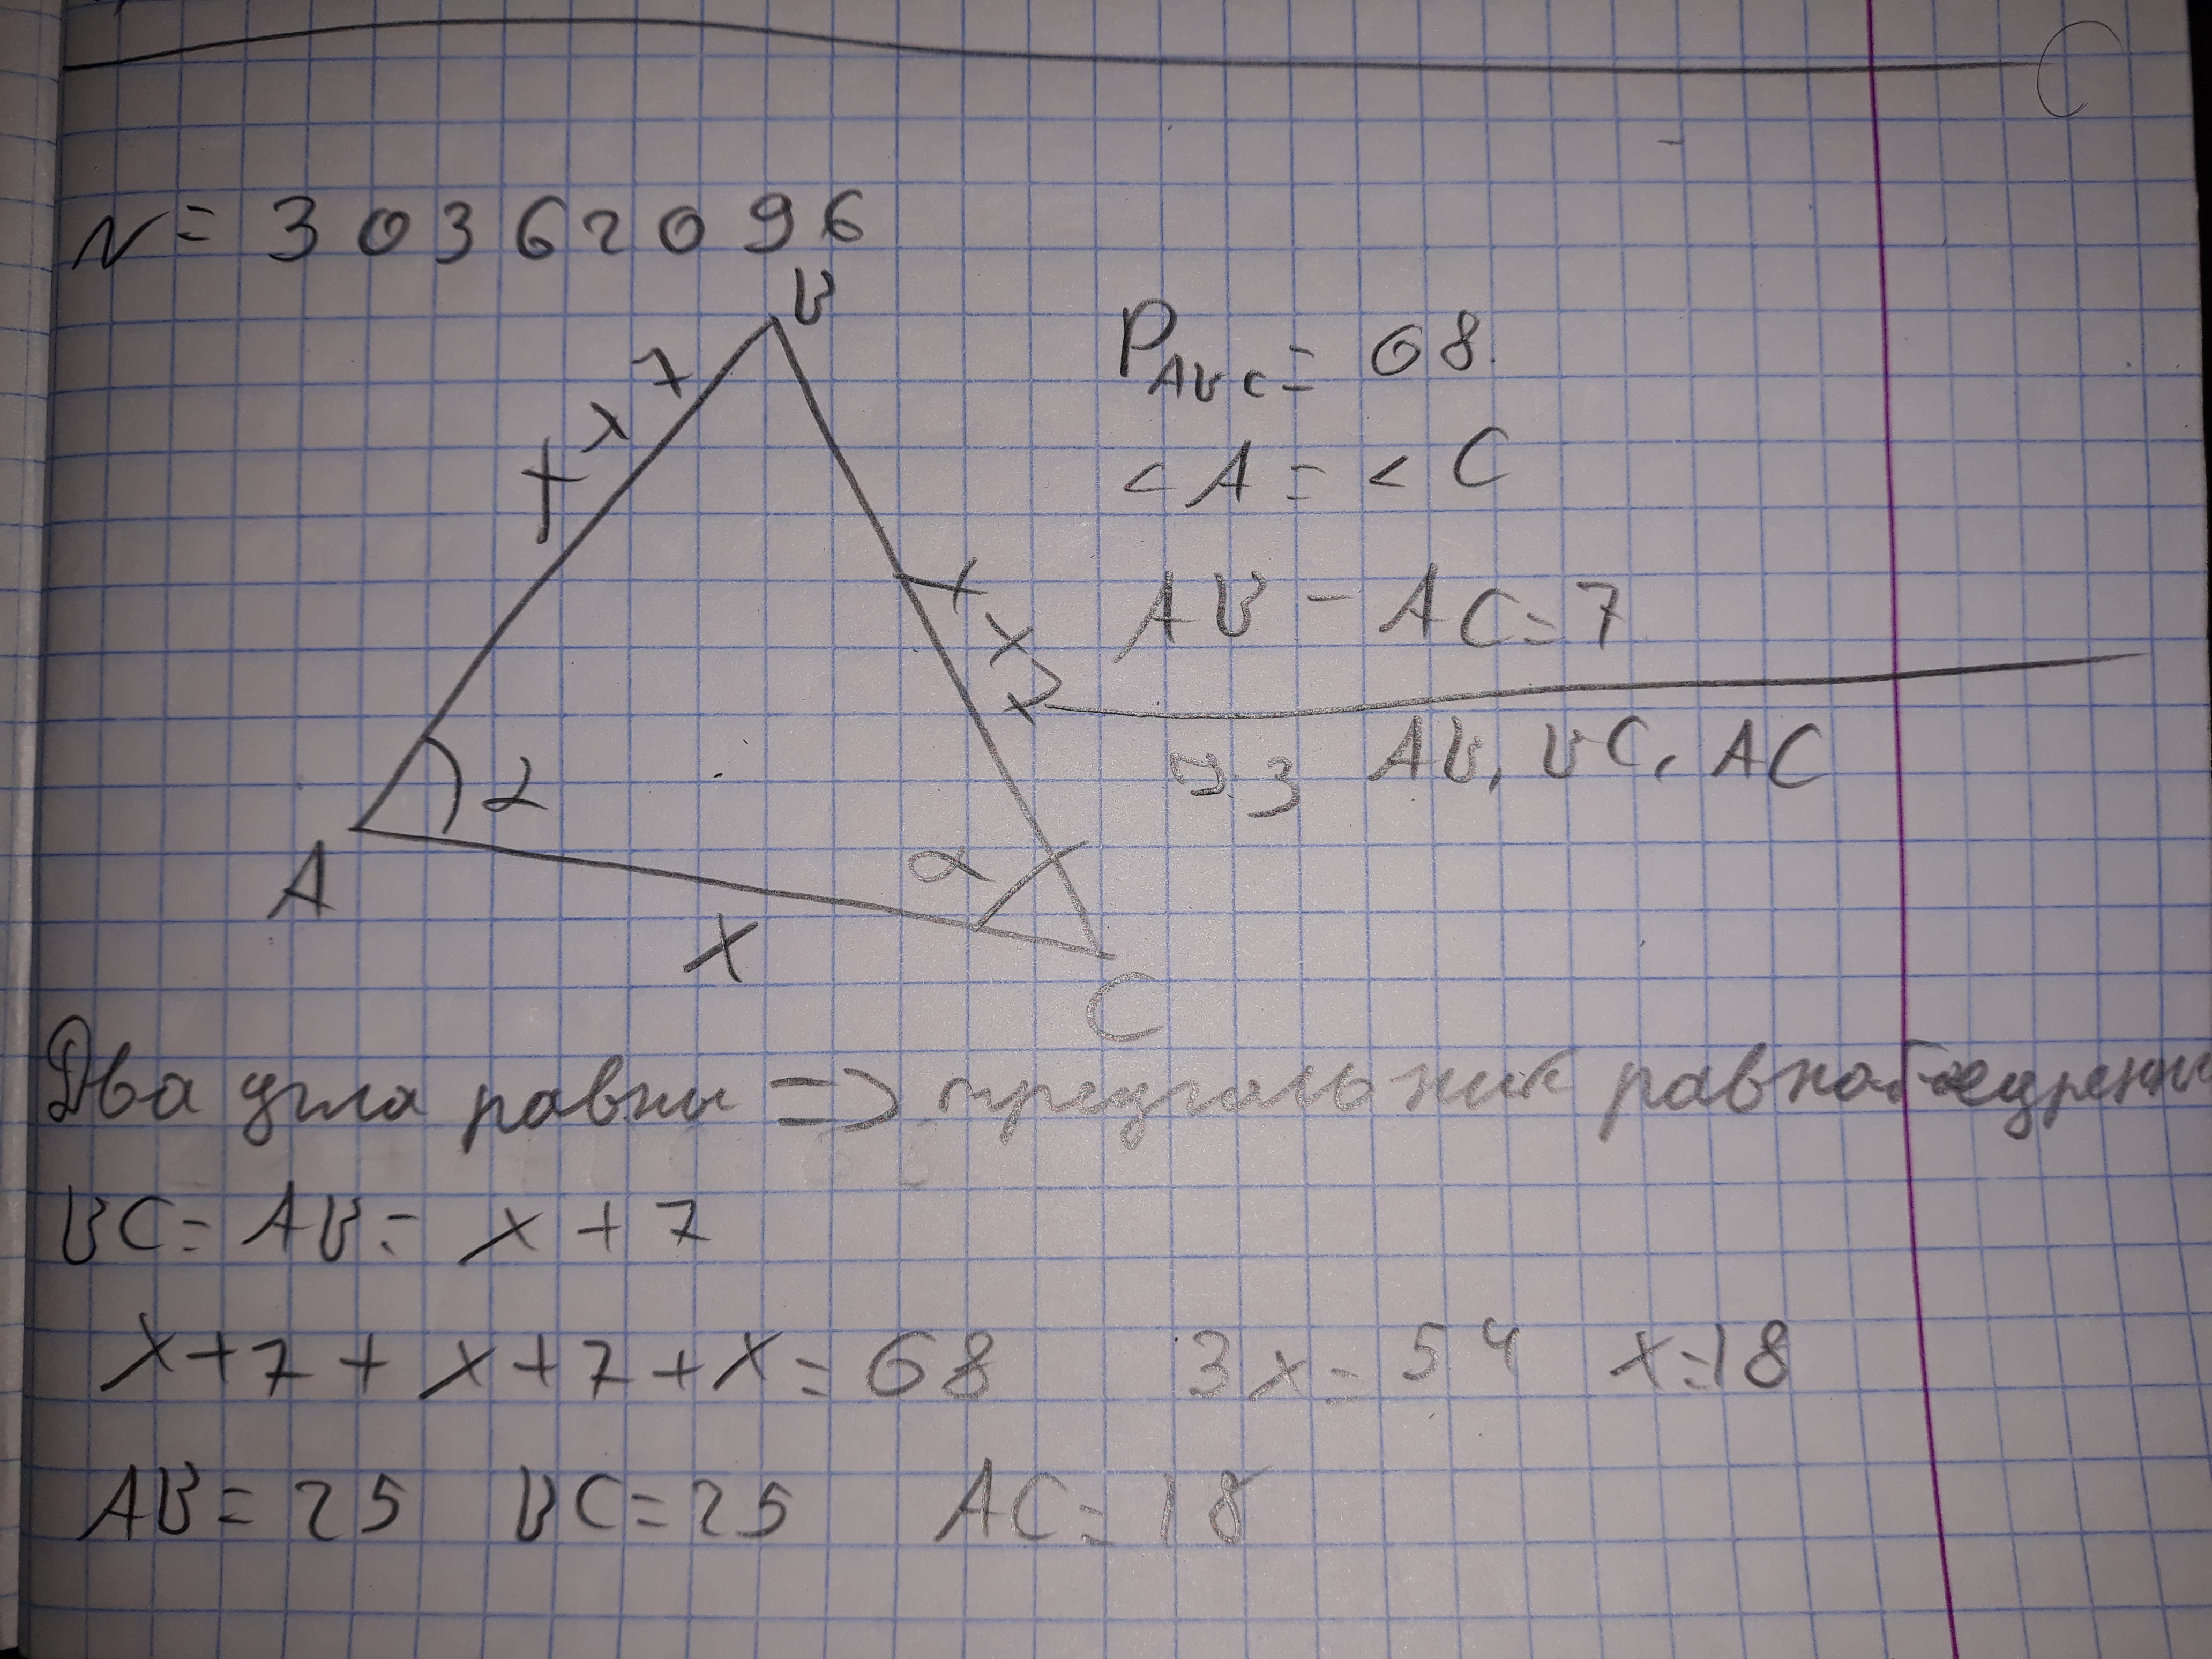 N = 30362096
B
x + 7
P ABC = 68.
< A = < C
AB - AC = 7
x + 7
?з AB, BC, AC
α
α
A
x
C
Два угла равны => треугольник равнобедренны
BC = AB = x + 7
x + 7 + x + 7 + x = 68 3x = 54 x = 18
AB = 25 BC = 25 AC = 18